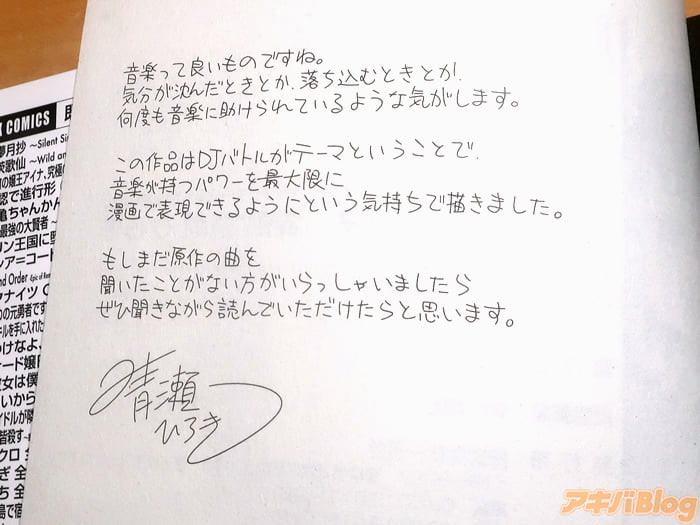 音楽って良いものですね。
気分が沈んだときとか、落ち込むときとか、
何度も音楽に助けられているような気がします。
この作品はDJバトルがテーマということで、
音楽が持つパワーを最大限に
漫画で表現できるようにという気持ちで描きました。
もしまだ原作の曲を
聞いたことがない方がいらっしゃいましたら
ぜひ聞きながら読んでいただけたらと思います。
晴瀬
ひろき
COMICS
夢月抄 ～Silent Si
英歌仙 ～Wild an
の魔王アイナ、究極の
認で進行形
亀ちゃんかん
最強の大賢者
リン王国に
レア＝コート
nd Order -Epic of Rem
ァナイツ
の元勇者です
キルを手に入れた
つけなよ、
オード嬢
彼女は僕
いから
イドルが隣
皆殺す
クロ 全
ぎ 全
ち 全
島で宿
アキバBlog